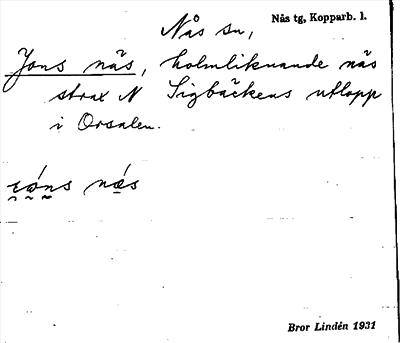 Nås sn,
Nås tg, Kopparb. l.
Jons näs, holmliknande näs
strax N Sigbäckens utlopp
i Orsalen.
näs
Bror Lindén 1931